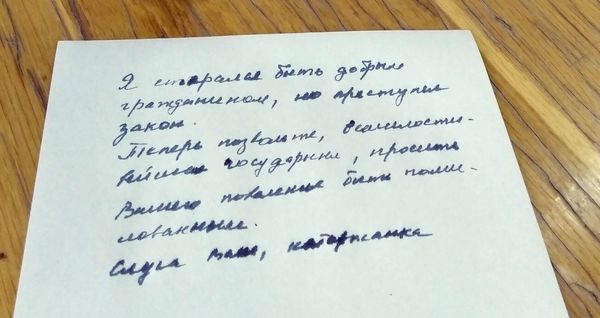 Я старался быть добрым
гражданином, но преступил
закон.
Теперь позвольте, всемилости-
вейшая государыня, просить
Вашего повеления быть поми-
лованным.
Слуга Ваш, каторжанка